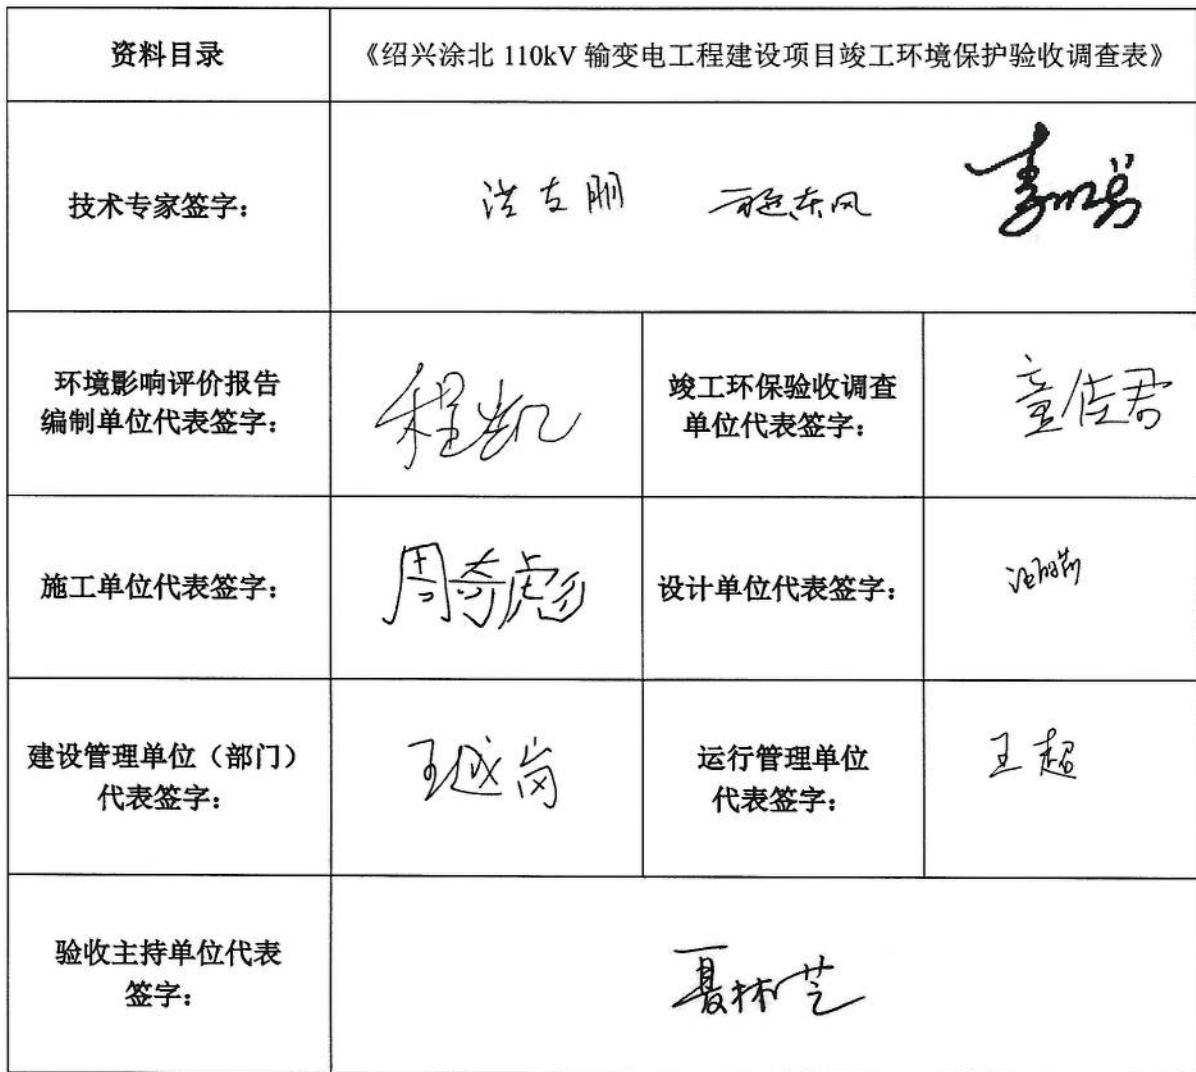 资料目录
《绍兴涂北 110kV 输变电工程建设项目竣工环境保护验收调查表》
技术专家签字：
施东风
环境影响评价报告
编制单位代表签字：
程凯
竣工环保验收调查
单位代表签字：
童佳君
施工单位代表签字：
周奇彪
设计单位代表签字：
建设管理单位（部门）
代表签字：
王越岗
运行管理单位
代表签字：
王超
验收主持单位代表
签字：
夏林芝